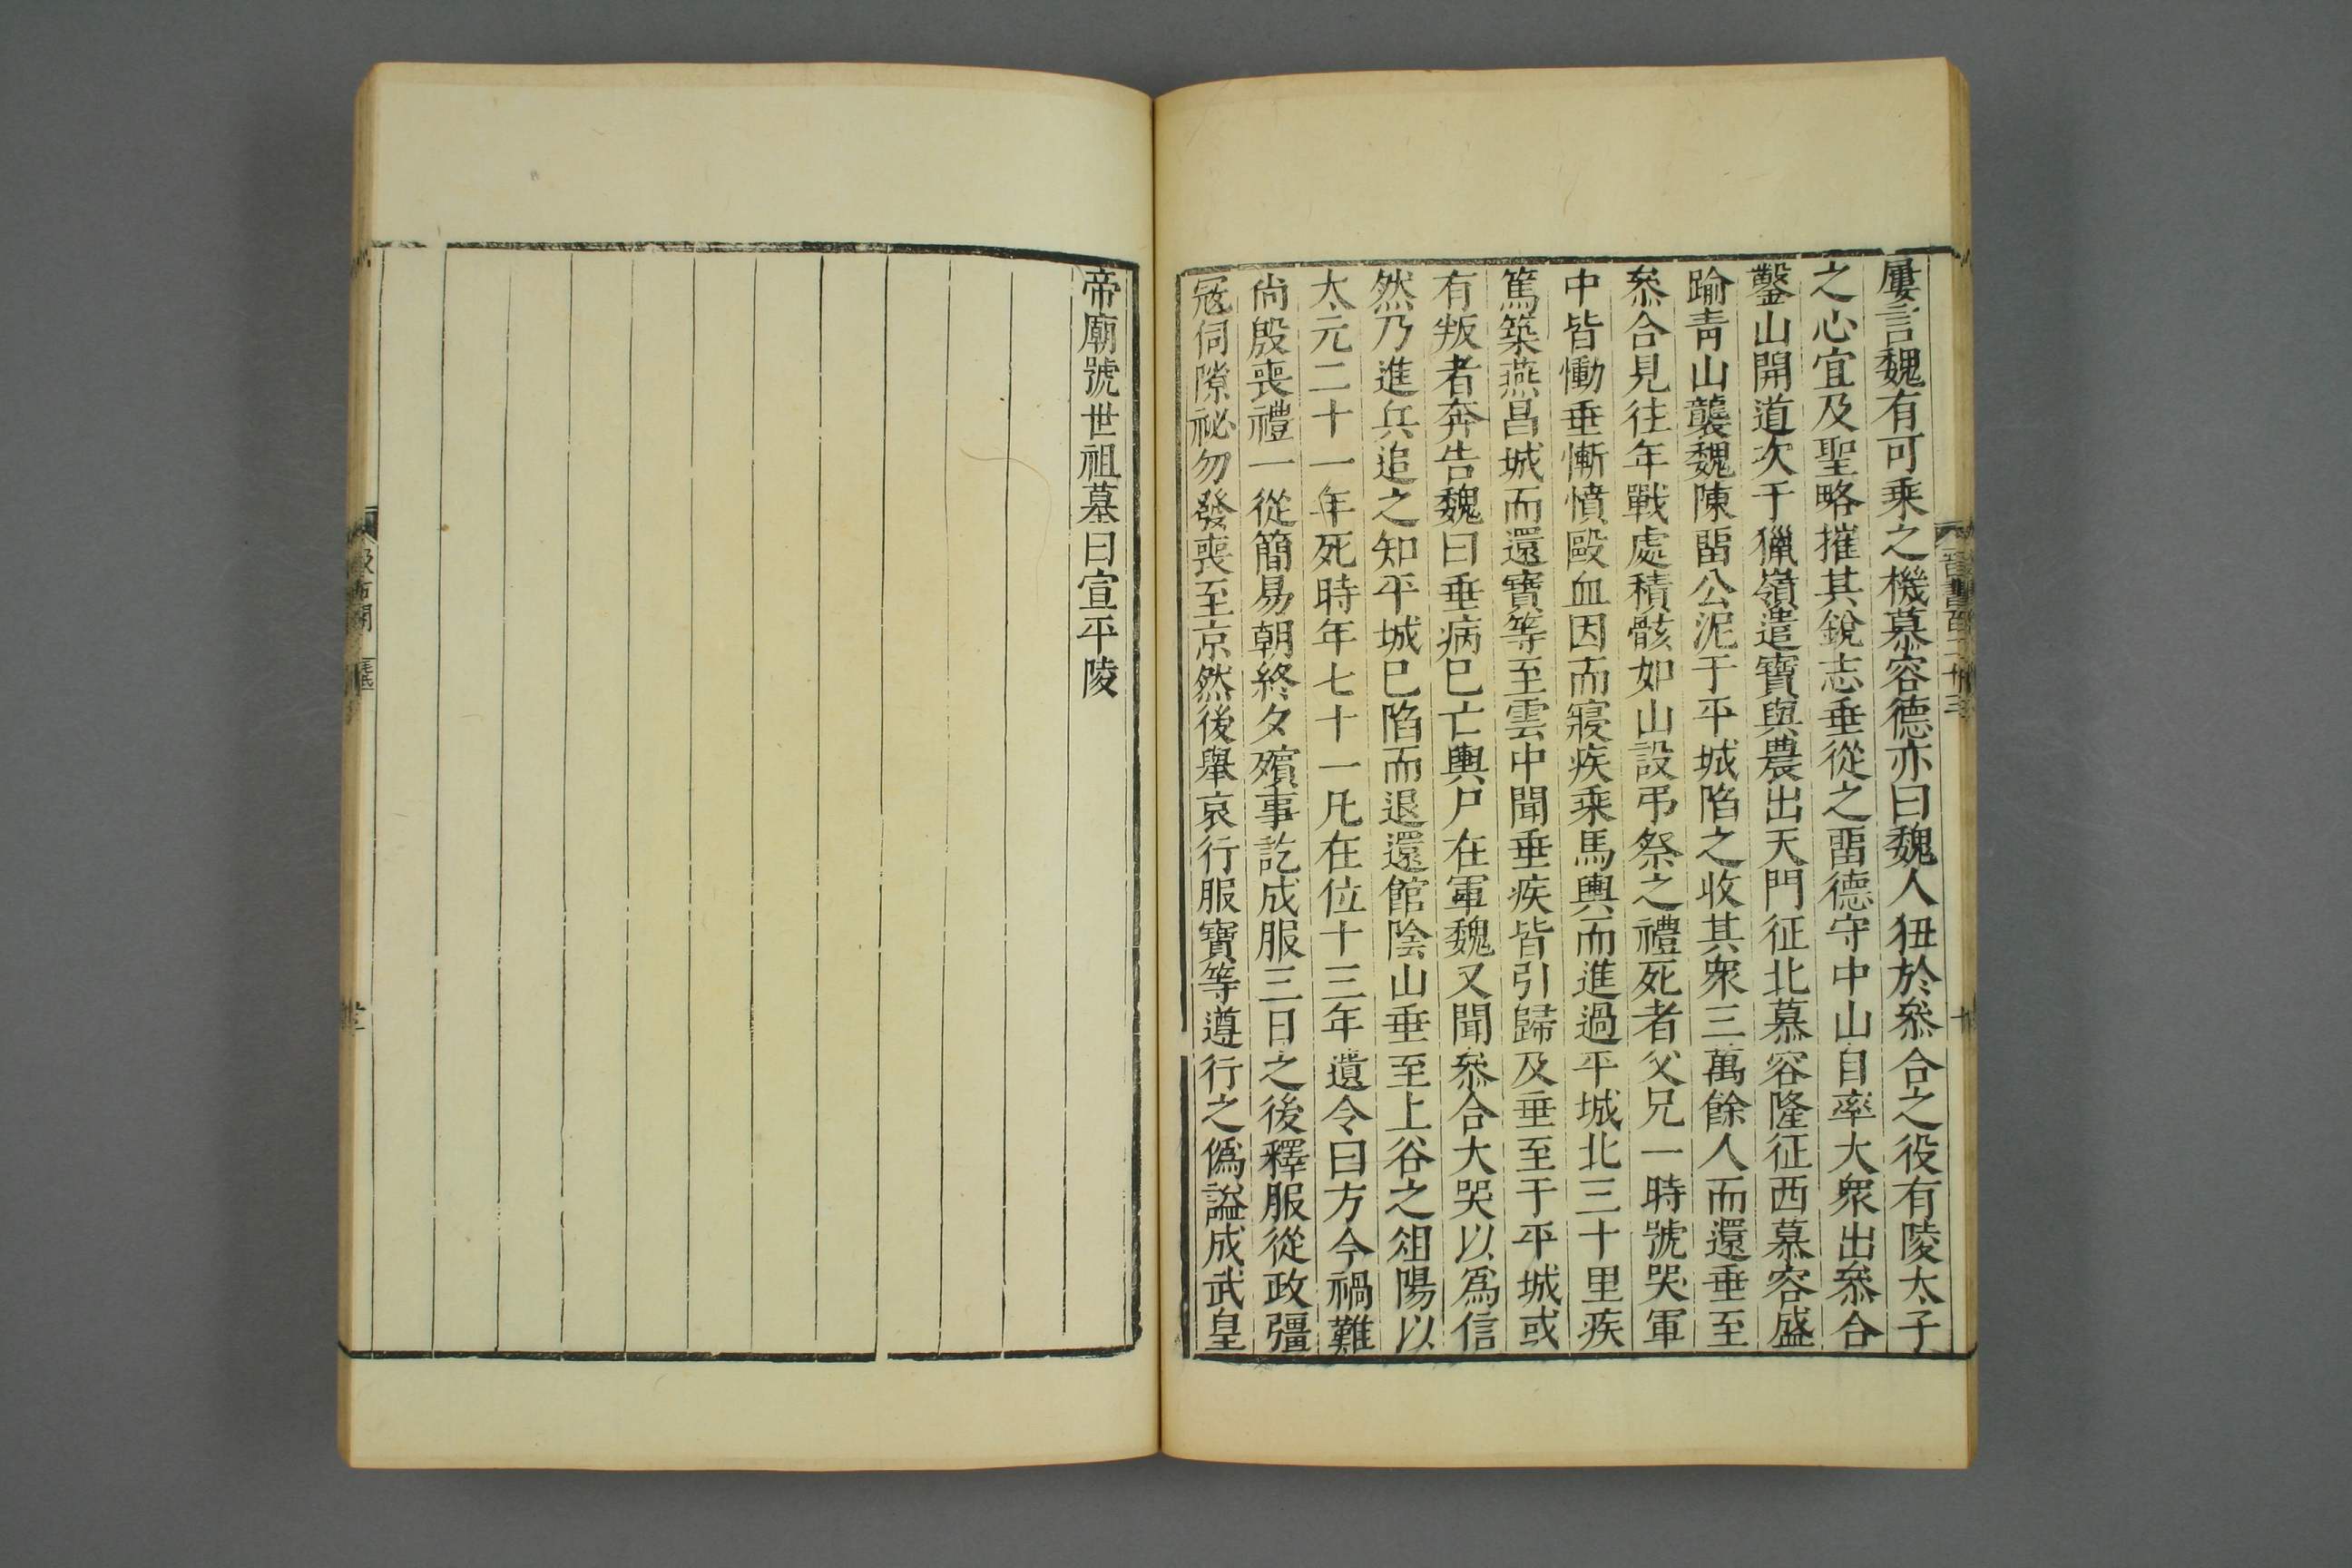 屢言魏有可乘之機慕容德亦曰魏人狃於叅合之役有陵太子
之心宜及聖略摧其銳志垂從之畱德守中山自率大衆出叅合
鑿山開道次于獵嶺遣寶與農出天門征北慕容隆征西慕容盛
踰青山襲魏陳畱公泥于平城陷之收其衆三萬餘人而還垂至
叅合見往年戰處積骸如山設弔祭之禮死者父兄一時號哭軍
中皆慟垂慚憤毆血因而寢疾乘馬輿而進過平城北三十里疾
篤築燕昌城而還寶等至雲中聞垂疾皆引歸及垂至于平城或
有叛者奔告魏曰垂病巳亡輿尸在軍魏又聞叅合大哭以爲信
然乃進兵追之知平城巳陷而退還館陰山垂至上谷之俎陽以
太元二十一年死時年七十一凡在位十三年遺令曰方今禍難
尚殷喪禮一從簡易朝終夕殯事訖成服三日之後釋服從政彊
寇伺隙祕勿發喪至京然後舉哀行服寶等遵行之僞諡成武皇
帝廟號世祖墓曰宣平陵